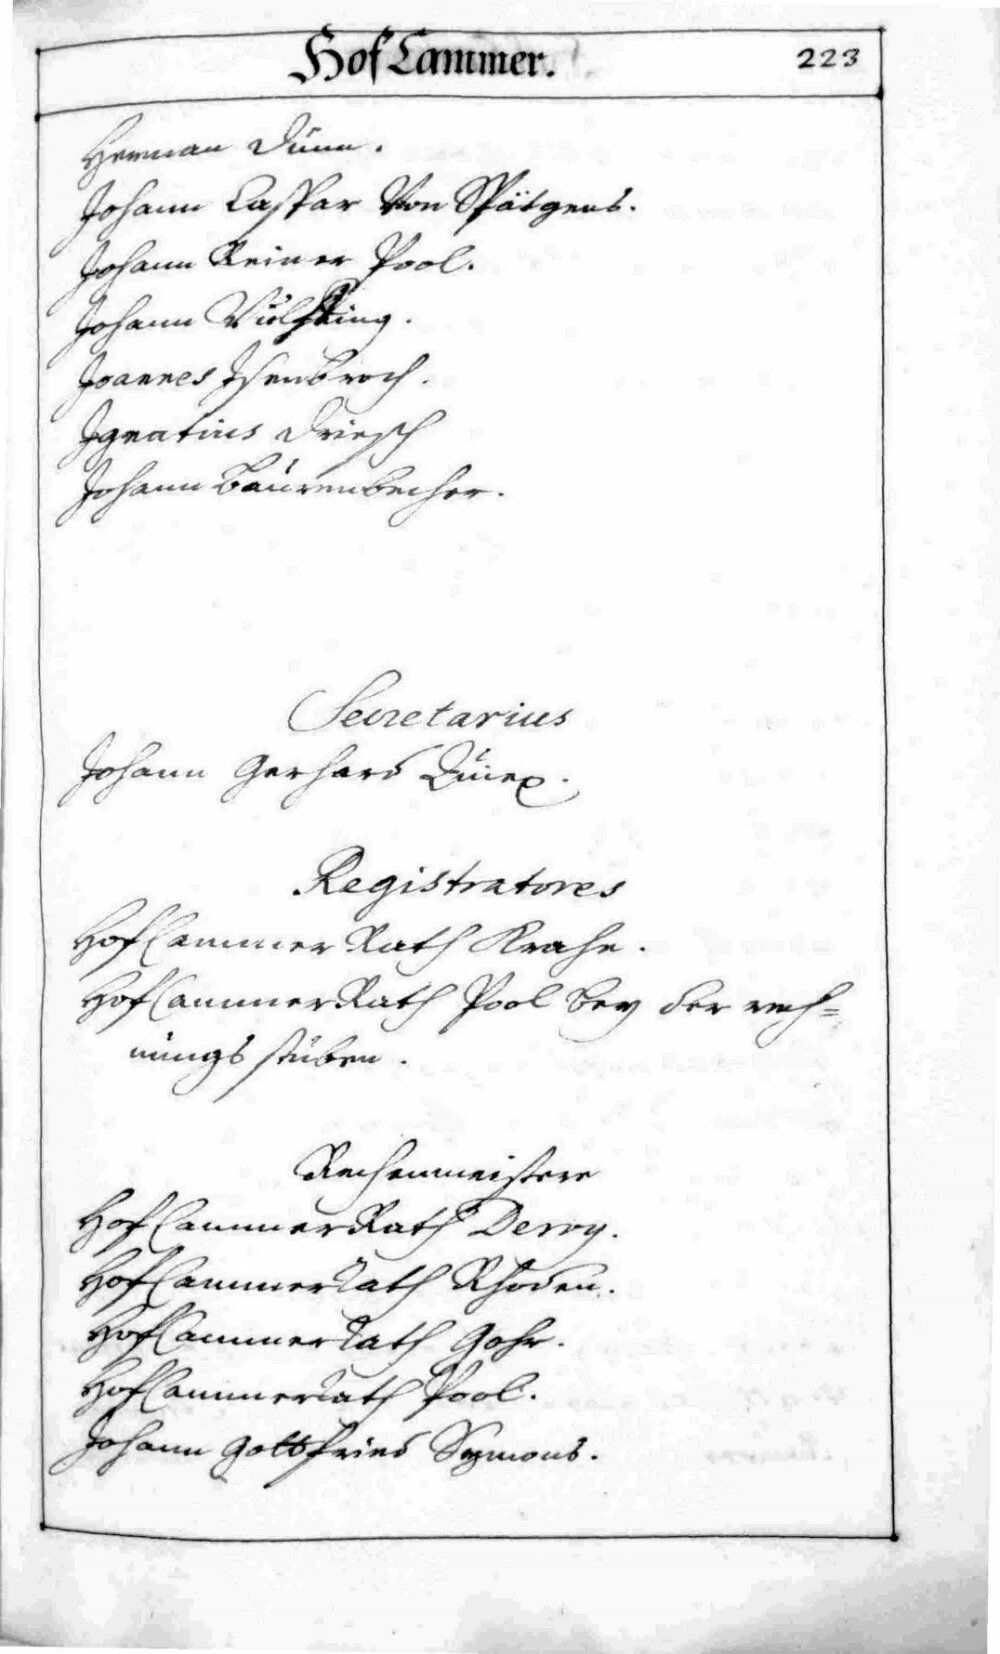 Hof Cammer. 223
Herman Dünn.
Johann Caspar Von Spätgens.
Johann Reiner Pool.
Johann
Joannes Isenbroch.
Ignatius Driesch
Johann Baurenbecher.
Secretarius
Johann Gerhard
Registratores
HofCammer Rath Krahe.
HofCammerRath Pool bey der rech=
nungs stuben.
Rechenmeistere
HofCammerRath Deroy.
HofCammerRath Rhoden.
HofCammerRath Gohr.
HofCammerrath Pool.
Johann Gottfried Symons.